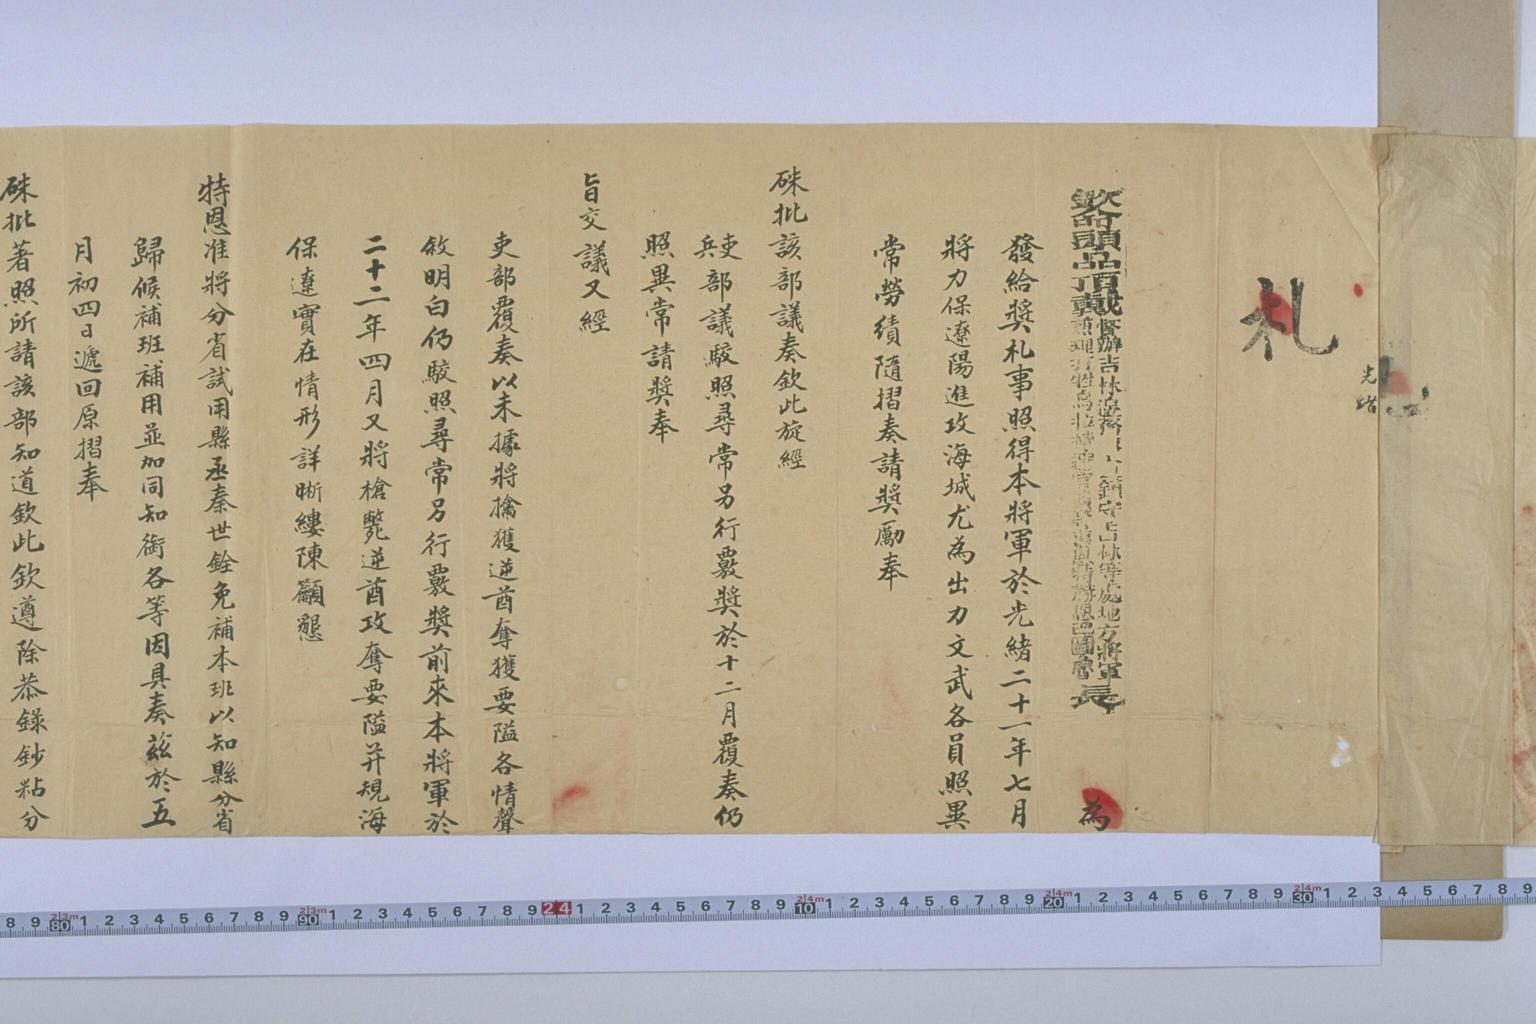 光緒
札
欽命頭品頂戴督辦吉林邊務鎮守吉林等處地方將軍恩巴圖魯長 為
發給獎札事照得本將軍於光緒二十一年七月
將力保遼陽進攻海城尤為出力文武各員照異
常勞績隨摺奏請獎勵奉
硃批該部議奏欽此旋經
吏兵部議駮照尋常另行覈獎於十二月覆奏仍
照異常請獎奉
旨交議又經
吏部覆奏以未據將擒獲逆酋奪獲要隘各情聲
敘明白仍駮照尋常另行覈獎前來本將軍於
二十二年四月又將槍斃逆酋攻奪要隘并規海
保遼實在情形詳晰縷陳籲懇
特恩准將分省試用縣丞秦世銓免補本班以知縣分省
歸候補班補用並加同知銜各等因具奏茲於五
月初四日遞回原摺奉
硃批著照所請該部知道欽此欽遵除恭錄鈔粘分